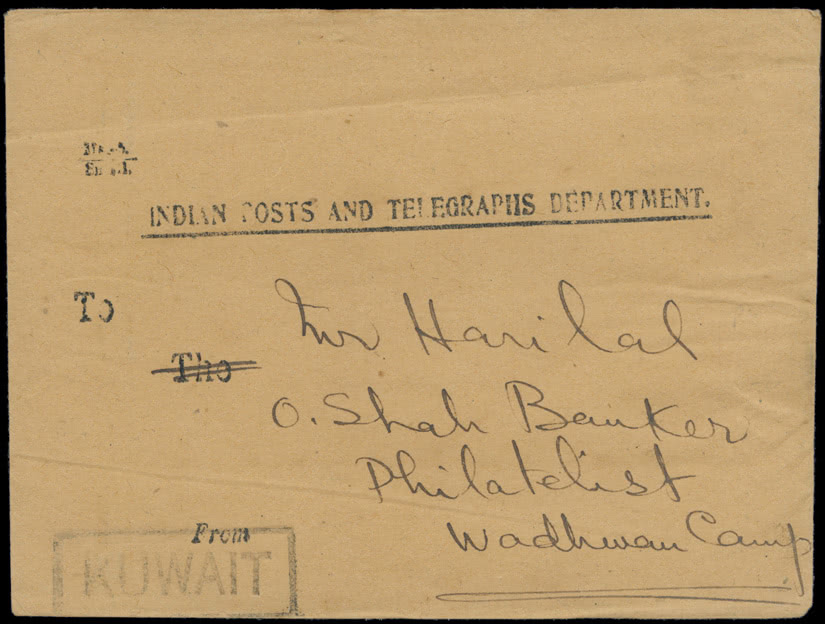 INDIAN POSTS AND TELEGRAPHS DEPARTMENT.
To
Mr Harilal
The
O. Shah Banker
Philatelist
Wadhwan Camp
From
KUWAIT